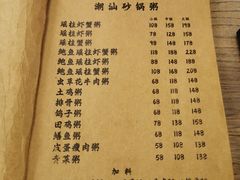 潮汕砂锅粥
小锅 中锅 大锅
瑶柱虾蟹粥 108 158 198
瑶柱虾粥 78 138 158
瑶柱蟹粥 98 148 188
鲍鱼瑶柱虾蟹粥 118 188 228
鲍鱼虾蟹粥 88 148 188
鲍鱼瑶柱虾粥 88 148 188
虫草花牛肉粥 68 118 148
土鸡粥 68 118 148
排骨粥 68 118 148
鸽子粥 68 118 148
田鸡粥 78 138 158
鳝鱼粥 68 118 148
皮蛋瘦肉粥 58 108 138
青菜粥 58 108 132
加料